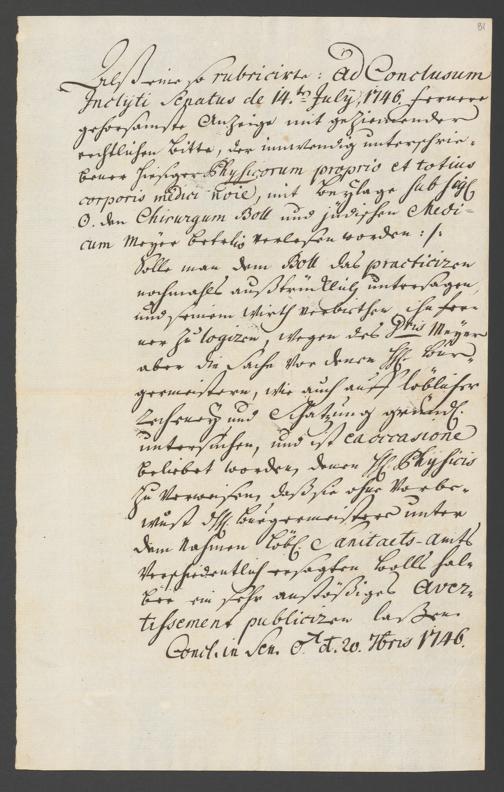 81
Alß eine so rubricirte: Ad Conclusum
Inclyti Senatus de 14.ten July, 1746. fernere
gehorsamste Anzeige mit geziemender
rechtlichen bitte, der innwendig unterschrie-
bener hiesiger Physicorum proprio et totius
corporis medici noie, mit beylage sub sig.
O. den Chirurgum Boll und jüdischen Medi-
cum Meyer betr. verlesen worden: /.
Solle man dem Boll das practiciren
nochmahls außtrücklich untersagen,
und seinem Wirth verbiethen, ihn fer-
ner zu logiren, wegen des Dris Meyer
aber die Sache vor denen HH. Bür-
germeistern, wie auch auff löblicher
Recheney und Schatzung gründl.
untersuchen, und ist ea occasione
beliebet worden, denen HH. Physicis
zu verweisen, daß sie ohne Vorbe-
wust HH. Bürgermeistere unter
dem Nahmen löbl. Sanitaets-amts
verschiedentlich ersagten Bolls hal-
ber ein sehr anstößiges Aver-
tissement publiciren laßen.
Concl. in Sen. d. 20. 7bris 1746.